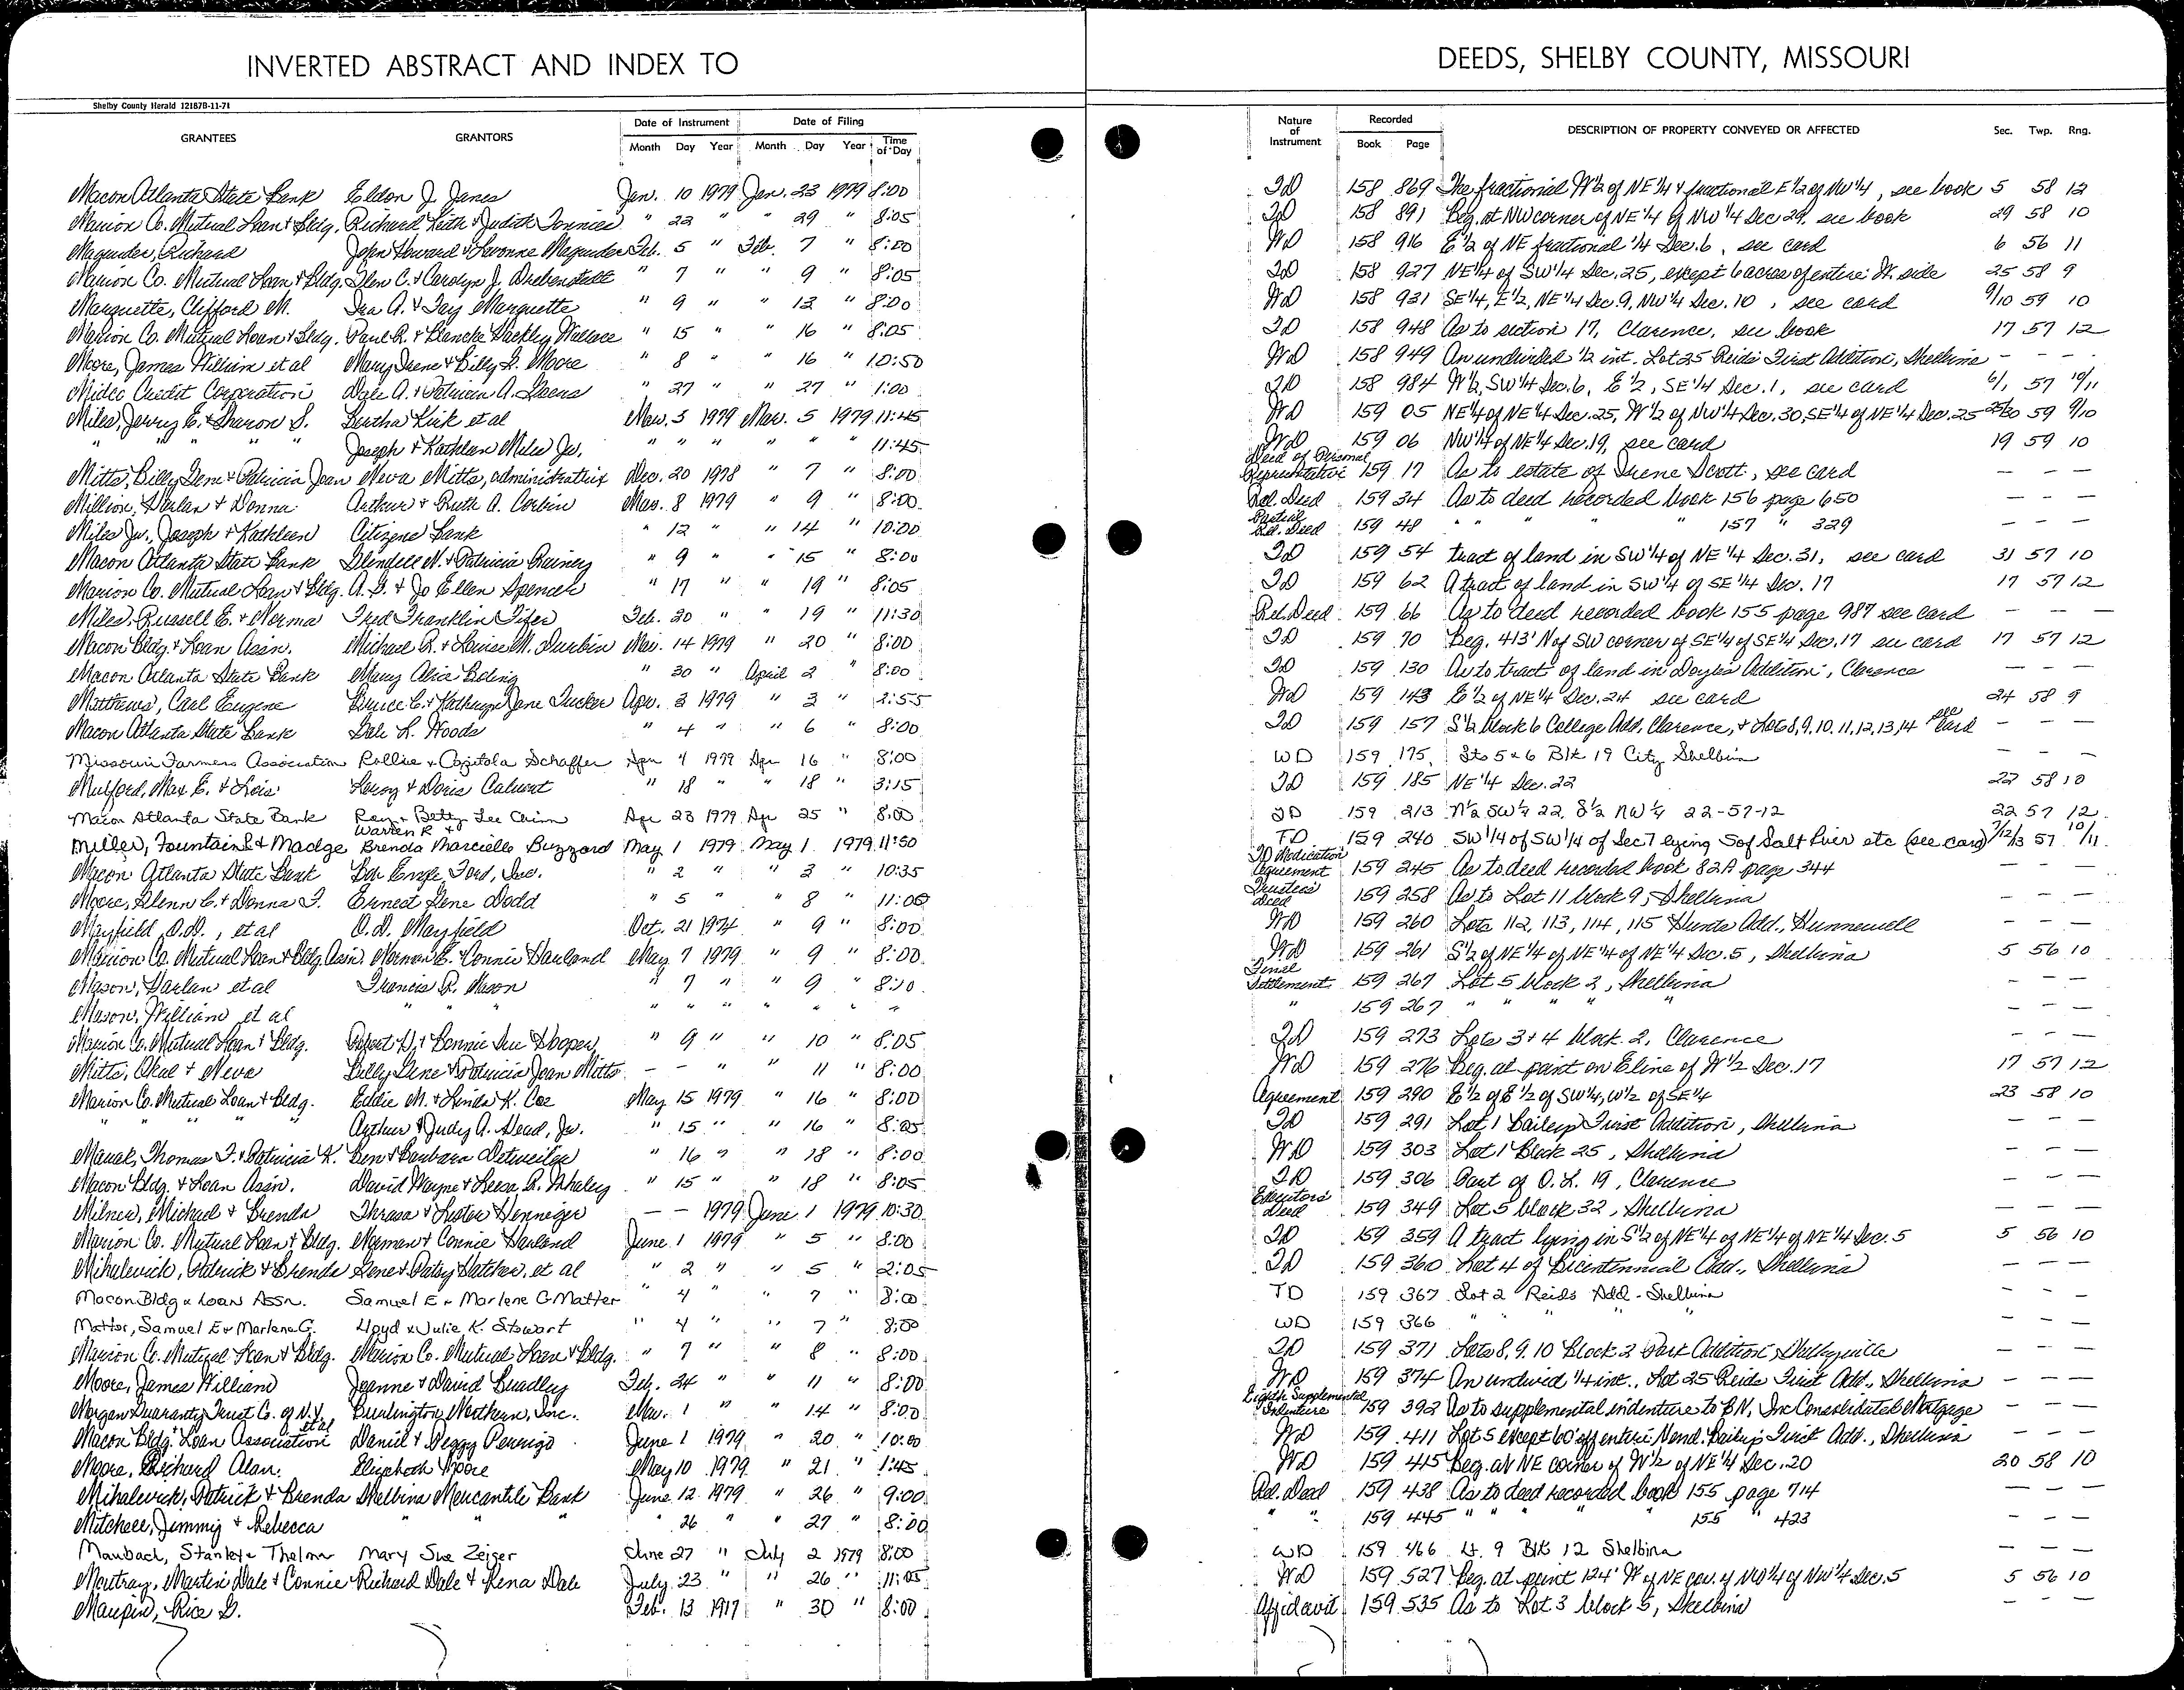 INVERTED ABSTRACT AND INDEX TO DEEDS, SHELBY COUNTY, MISSOURI
Shelby County Herald 12187B-11-71
GRANTEES GRANTORS Date of Instrument Month Day Year Date of Filing Month Day Year Time of Day Nature of Instrument Recorded Book Page DESCRIPTION OF PROPERTY CONVEYED OR AFFECTED Sec. Twp. Rng.
Macon Atlanta State Bank Eldon J. Janes Jan. 10 1979 Jan. 23 1979 8:00 TD 158 869 The fractional W½ of NE¼ & fractional E½ of NW¼, see book 5 58 12
Marion Co. Mutual Loan & Bldg. Richard Keith & Judith Tonnies " 22 " " 29 " 8:05 TD 158 891 Beg. at NW corner of NE¼ of NW¼ Sec 29, see book 29 58 10
Magruder, Richard John Howard & Lavonne Magruder Feb. 5 " Feb. 7 " 8:00 WD 158 916 E½ of NE fractional ¼ Sec. 6, see card 6 56 11
Marion Co. Mutual Loan & Bldg. Glen C. & Carolyn J. " 7 " " 9 " 8:05 TD 158 927 NE¼ of SW¼ Sec. 25, except 6 acres of entire W. side 25 58 9
Marquette, Clifford M. Ira A. & Fay Marquette " 9 " " 13 " 8:00 WD 158 931 SE¼, E½, NE¼ Sec. 9, NW¼ Sec. 10, see card 9/10 59 10
Marion Co. Mutual Loan & Bldg. Paul R. & Blanche Hackley Wallace " 15 " " 16 " 8:05 TD 158 948 As to section 17, Clarence, see book 17 57 12
Moore, James William et al Mary Irene & Billy G. Moore " 8 " " 16 " 10:50 WD 158 949 An undivided ½ int. Lot 25 Reids First Addition, Shelbina - - -
Midec Credit Corporation Dale A. & Patricia A. " 27 " " 27 " 1:00 TD 158 984 W½, SW¼ Sec. 6, E½, SE¼ Sec. 1, see card 6/1 57 10/11
Miles, Jerry E. & Sharon S. Bertha Kirk et al Mar. 3 1979 Mar. 5 1979 11:45 WD 159 05 NE¼ of NE¼ Sec. 25, W½ of NW¼ Sec. 30, SE¼ of NE¼ Sec. 25 25/30 59 9/10
" " " " Joseph & Kathleen Miles Jr. " " " " " " 11:45 WD 159 06 NW¼ of NE¼ Sec. 19, see card 19 59 10
Mitts, Billy Gene & Patricia Jean Neva Mitts, administratrix Dec. 20 1978 " 7 " 8:00 Deed of Personal Representative 159 17 As to estate of Irene Scott, see card - - -
Million, Harlan & Donna Arthur & Ruth A. Corbin Mar. 8 1979 " 9 " 8:00 Rel. Deed 159 34 As to deed recorded book 156 page 650 - - -
Miles Jr., Joseph & Kathleen Citizens Bank " 12 " " 14 " 10:00 Partial Rel. Deed 159 48 " " " " 157 " 329 - - -
Macon Atlanta State Bank Glendell N. & Patricia Rainey " 9 " " 15 " 8:00 TD 159 54 tract of land in SW¼ of NE¼ Sec. 31, see card 31 57 10
Marion Co. Mutual Loan & Bldg. A. G. & Jo Ellen Spencer " 17 " " 19 " 8:05 TD 159 62 A tract of land in SW¼ of SE¼ Sec. 17 17 57 12
Miles, Russell E. & Norma Fred Franklin Fifer Feb. 20 " " 19 " 11:30 Rel. Deed 159 66 As to deed recorded book 155 page 987 see card - - -
Macon Bldg. & Loan Assn. Michael R. & Louise M. Durbin Mar. 14 1979 " 20 " 8:00 TD 159 70 Beg. 413' N of SW corner of SE¼ of SE¼ Sec. 17 see card 17 57 12
Macon Atlanta State Bank Mary Alice Boling " 30 " April 2 " 8:00 TD 159 130 As to tract of land in Doyles Addition, Clarence - - -
Matthews, Carl Eugene Bruce C. & Kathryn Jane Tucker Apr. 3 1979 " 3 " 2:55 WD 159 143 E½ of NE¼ Sec. 24 see card 24 58 9
Macon Atlanta State Bank Dale L. Woods " 4 " " 6 " 8:00 TD 159 157 S½ block 6 College Add, Clarence, & Lots 8, 9, 10, 11, 12, 13, 14 see card - - -
Missouri Farmers Association Rollie & Capitola Schaffer Apr 4 1979 Apr 16 " 8:00 WD 159 175 Lts 5 & 6 Blk 19 City Shelbina - - -
Mulford, Max E. & Lois Leroy & Doris Calvert " 18 " " 18 " 3:15 TD 159 185 NE¼ Sec. 22 22 58 10
Macon Atlanta State Bank Ray & Betty Lee Chinn Apr 23 1979 Apr 25 " 8:00 TD 159 213 N½ SW¼ 22, S½ NW¼ 22-57-12 22 57 12
Miller, Fountain S & Madge Warren R & Brenda Marcielle Buzzard May 1 1979 May 1 1979 11:50 TD 159 240 SW¼ of SW¼ of Sec 7 lying S of Salt River etc (see card) 7/12/13 57 10/11
Macon Atlanta State Bank Bob Ford, Inc. " 2 " " 3 " 10:35 TD Modification Agreement 159 245 As to deed recorded book 82A page 344 - - -
Moore, Glenn C. & Donna F. Ernest Gene Dodd " 5 " " 8 " 11:00 Trustees Deed 159 258 As to Lot 11 block 9, Shelbina - - -
Mayfield, O.D., et al O.D. Mayfield Oct. 21 1974 " 9 " 8:00 WD 159 260 Lots 112, 113, 114, 115 Hunts Add., Hunnewell - - -
Marion Co. Mutual Loan & Bldg Assn Norman E. & Connie Harland May 7 1979 " 9 " 8:00 WD 159 261 S½ of NE¼ of NE¼ of NE¼ Sec. 5, Shelbina 5 56 10
Mason, Harlan et al Francis R. Mason " 7 " " 9 " 8:10 Final Settlement 159 267 Lot 5 block 2, Shelbina - - -
Mason, William et al " " " " " " " " " 159 267 " " " " " - - -
Marion Co. Mutual Loan & Bldg. Robert D. & Bonnie Sue Hooper " 9 " " 10 " 8:05 TD 159 273 Lots 3 & 4 block 2, Clarence - - -
Mitts, Okal & Neva Billy Gene & Patricia Jean Mitts - - " " 11 " 8:00 WD 159 276 Beg. at point on E line of W½ Sec. 17 17 57 12
Marion Co. Mutual Loan & Bldg. Eddie M. & Linda K. Coe May 15 1979 " 16 " 8:00 Agreement 159 290 E½ of E½ of SW¼, W½ of SE¼ 23 58 10
" " " " Arthur & Judy A. Head, Jr. " 15 " " 16 " 8:05 TD 159 291 Lot 1 Baileys First Addition, Shelbina - - -
Thomas F. & Patricia K. Ben & Barbara Detweiler " 16 " " 18 " 8:00 WD 159 303 Lot 1 Block 25, Shelbina - - -
Macon Bldg. & Loan Assn. David Wayne & Leesa R. Whaley " 15 " " 18 " 8:05 TD 159 306 Part of O. L. 19, Clarence - - -
Milner, Michael & Brenda Thrasa & Lester Henneger - - 1979 June 1 1979 10:30 Executors Deed 159 349 Lot 5 block 32, Shelbina - - -
Marion Co. Mutual Loan & Bldg. Norman & Connie Harland June 1 1979 " 5 " 8:00 TD 159 359 A tract lying in S½ of NE¼ of NE¼ of NE¼ Sec. 5 5 56 10
Mihalevich, Patrick & Brenda Gene & Patsy Hatcher, et al " 2 " " 5 " 2:05 TD 159 360 Lot 4 of Bicentennial Add., Shelbina - - -
Macon Bldg & Loan Assn. Samuel E & Marlene G Matter " 4 " " 7 " 8:00 TD 159 367 Lot 2 Reids Add - Shelbina - - -
Matter, Samuel E & Marlene G. Lloyd & Julie K. Stewart " 4 " " 7 " 8:00 WD 159 366 " " " " - - -
Marion Co. Mutual Loan & Bldg. Marion Co. Mutual Loan & Bldg. " 7 " " 8 " 8:00 TD 159 371 Lots 8, 9, 10 Block 2 Park Addition, Shelbyville - - -
Moore, James William Jeanne & David Bradley Feb. 24 " " 11 " 8:00 WD 159 374 An undivid ¼ int., Lot 25 Reids First Add., Shelbina - - -
Morgan Guaranty Trust Co. of N.Y. et al Burlington Northern, Inc. Mar. 1 " " 14 " 8:00 Eighth Supplemental Indenture 159 392 As to supplemental indenture to BN, Inc Consolidated Mortgage - - -
Macon Bldg. & Loan Association Daniel & Peggy Perrigo June 1 1979 " 20 " 10:00 WD 159 411 Lot 5 except 60' off entire N end. Baileys First Add., Shelbina - - -
Moore, Richard Alan. Elizabeth Moore May 10 1979 " 21 " 1:45 WD 159 415 Beg. at NE corner of W½ of NE¼ Sec. 20 20 58 10
Mihalevich, Patrick & Brenda Shelbina Mercantile Bank June 12 1979 " 26 " 9:00 Rel. Deed 159 438 As to deed recorded book 155 page 714 - - -
Mitchell, Jimmy & Rebecca " " " " 26 " " 27 " 8:00 " " 159 445 " " " " 155 " 423 - - -
Maubach, Stanley & Thelma Mary Sue Zeiger June 27 " July 2 1979 8:00 WD 159 466 Lt. 9 Blk 12 Shelbina - - -
Moutray, Martin Dale & Connie Richard Dale & Rena Dale July 23 " " 26 " 11:05 WD 159 527 Beg. at point 124' W of NE cor. of NW¼ of NW¼ Sec. 5 5 56 10
Maupin, Rice G. Feb. 13 1917 " 30 " 8:00 Affidavit 159 535 As to Lot 3 block 5, Shelbina - - -